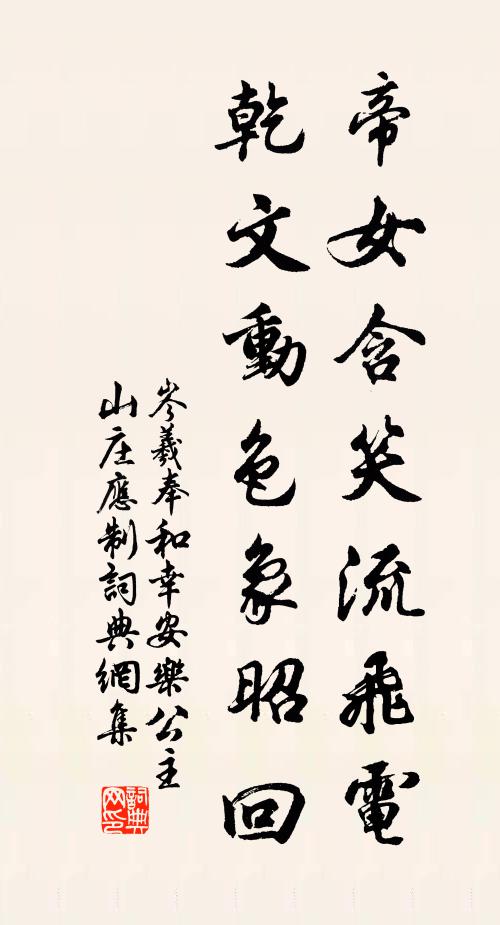 帝女含笑流飛電
乾文動色象昭回
岑羲奉和幸安樂公主
山庄應制詞典網集
詞典網印